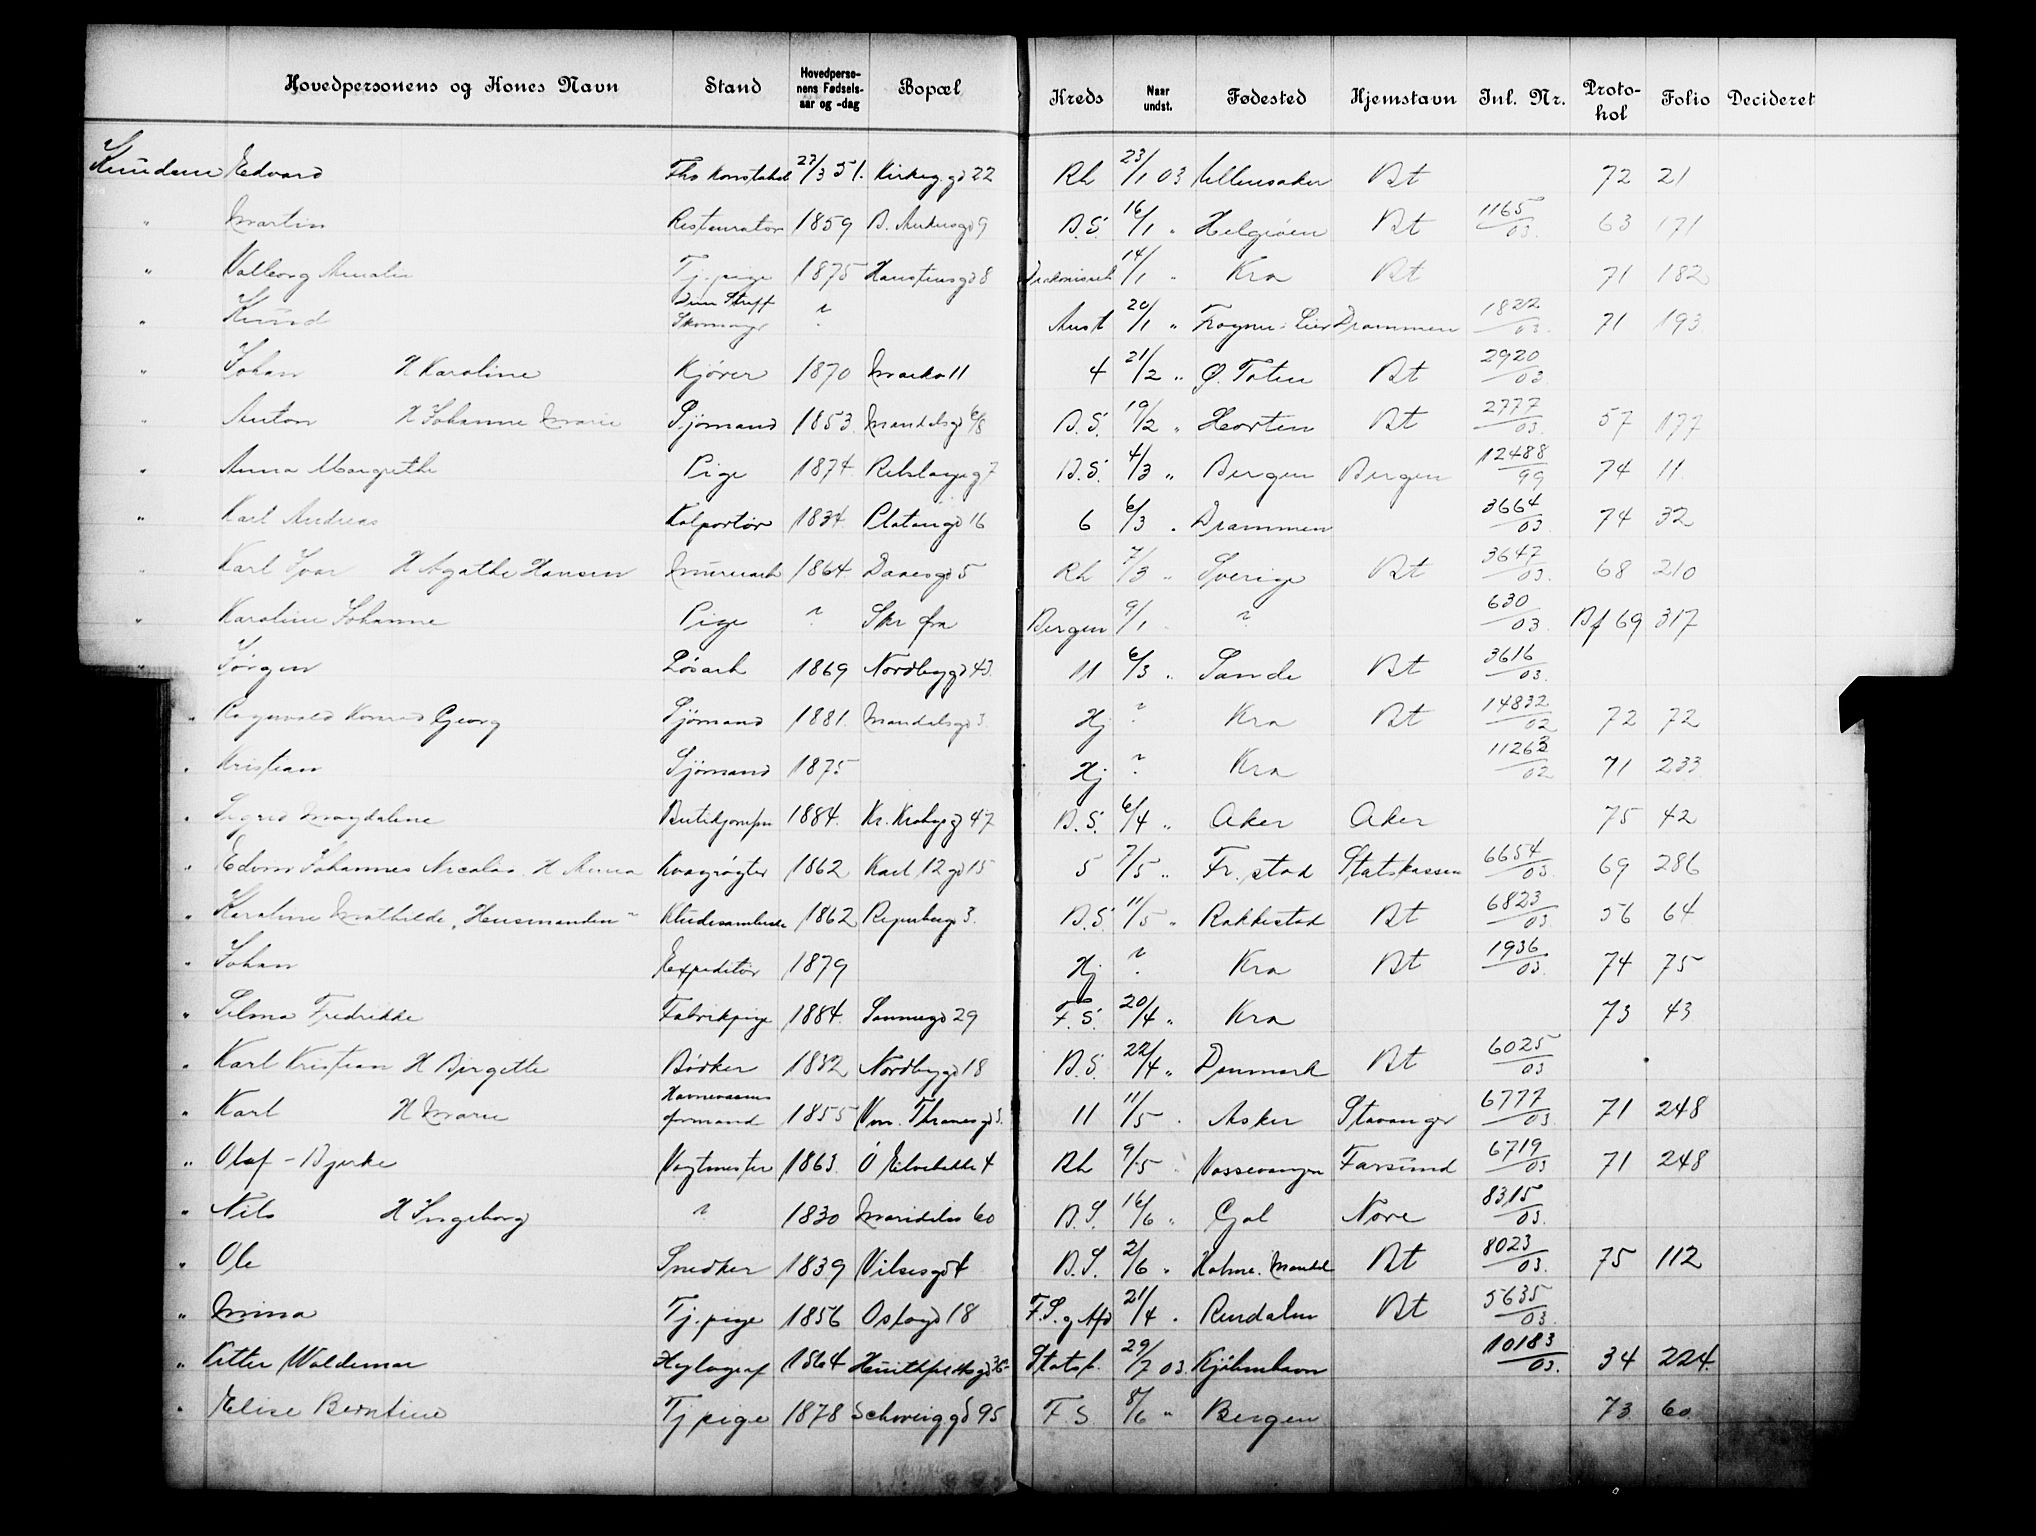 Hovedpersonens og Kones Navn Stand Hovedpersonens Fødselsaar og -dag Bopæl Kreds Naar undst. Fødested Hjemstavn Inl. Nr. Protokol Folio Decideret
Knudsen Edvard Fhv Konstabel 27/3 51. Kirkeg.gd 22 Rh 23/1 03 Ullensaker Bt 72 21
" Martin Restauratør 1859 B. Ankersgd 9 B.S. 16/1 " Helgøen Bt 1165/03. 63 171
" Valborg Amalie Tj.pige 1875 Hausmsgd 8 14/1 " Kra Bt 71 182
" Knud Skomager ? Aust 20/1 " Frogner i Lier Drammen 1822/03. 71 193
" Johan H Karoline Kjører 1870 Markv 11 4 21/2 " Ø. Toten Bt 2920/03.
" Anton H Johanne Marie Sjømand 1853. Mandalsgd 6/8 B.S. 19/2 " Horten Bt 2777/03. 57 177
" Anna Margrethe Pige 1874. Rebslagerg 7 B.S. 4/3 " Bergen Bergen 12488/99 74 11.
" Karl Andreas Kolportør 1834. Platangd 16 6 6/3 " Drammen 3664/03. 74 32
" Karl Ivar H Agathe Hansen Murerarb 1864 Daaesgd 5 Rh 7/3 " Sverige Bt 3647/03. 68 210
" Karoline Johanne Pige ? Skr fra Bergen 9/1 ? 630/03. Bf 69 317
" Jørgen Løsarb 1869 Nordbygd 43. 11 6/3 " Sande Bt 3616/03.
" Ragnvald Konrad Georg Sjømand 1881. Mandalsgd 3. Hj ? Kra Bt 14832/02 72 72
" Kristian Sjømand 1875 Hj ? Kra 11263/02 71 233
" Sigrid Magdalene Butikjomfru 1884. Kr. Krohgsg 47 B.S. 6/4 " Aker Aker 75 42
" Edvin Johannes Nicolai H Anna Kvægrøgter 1862 Karl 12 gd 15 5 7/5 " Fr.stad Statskassen 6654/03. 69 286
" Karoline Mathilde "Husmanden" Kludesamlerske 1862 Reperbang 3. B.S. 11/5 " Rakkestad Bt 6823/03. 56 64
" Johan Expeditør 1879 Hj ? Kra Bt 1936/03. 74 75
" Selma Fredrikke Fabrikpige 1884. Sannergd 29 F.S. 20/4 " Kra 73 43
" Karl Kristian H Birgitte Bødker 1832 Nordbygd 18 B.S. 22/4 " Danmark Bt 6025/03
" Karl H Marie Havnevæsens formand 1855 Vm. Thranesgd 3. 11 11/5 " Asker Stavanger 6777/03. 71 248
" Olaf - Bjerke Vagtmester 1863. Ø Eilvebakke 4 Rh 9/5 " Vossevangen Farsund 6719/03 71 248
" Nils H Ingeborg ? 1830 Maridalsv 60 B.S. 16/6 " Gol Nore 8315/03.
" Ole Snedker 1839 Vibesgd 4 B.S. 2/6 " Halme. Mandal Bt 8023/03. 75 112
" Mina Tj.pige 1856 Oslogd 18 F.S. g Afd 21/4 " Rendalen Bt 5635/03.
" Petter Waldemar Xylograf 1864 Huitfeldtsgd 36 Statsf. 29/7 03. Kjøbenhavn 10183/03. 34 224.
" Elise Berntine Tj pige 1878 Schweiggd 95 F.S. 8/6 " Bergen 73 60